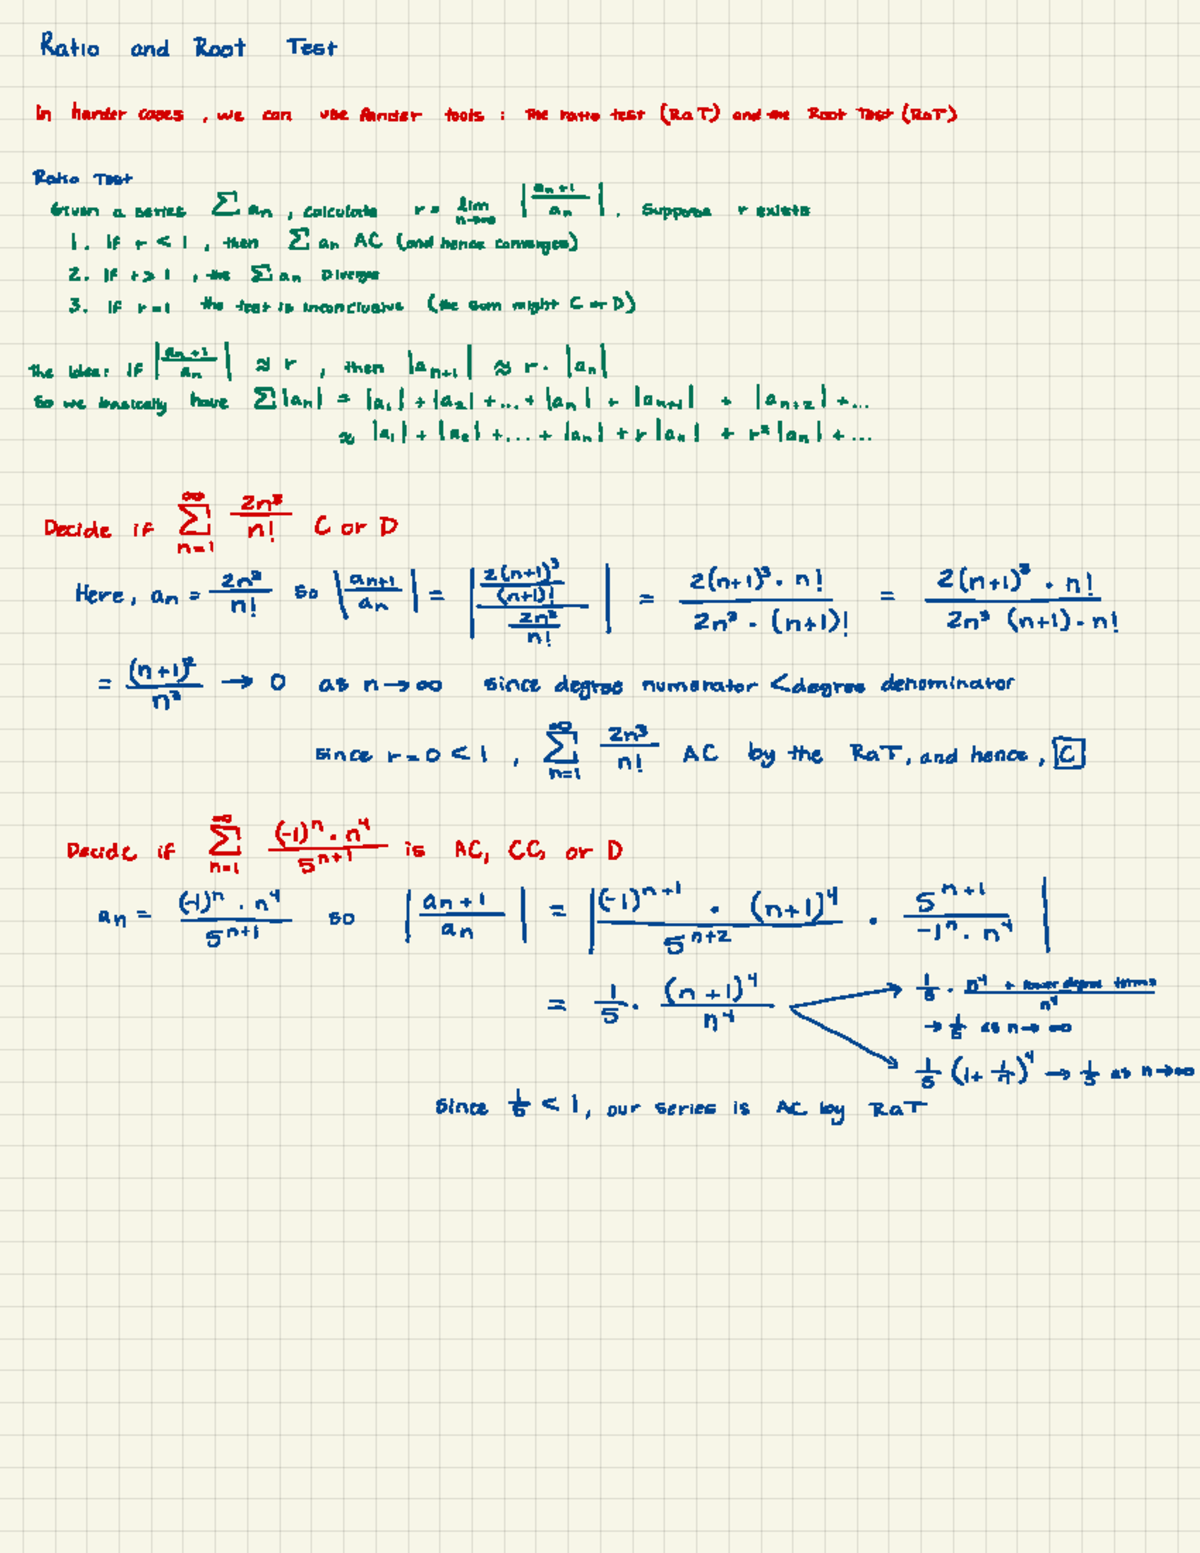 Ratio and Root Test
In harder cases, we can use fancier tools: The ratio test (RaT) and the Root Test (RoT)
Ratio Test
Given a series ∑ an, calculate r = lim n→∞ |an+1 / an|. Suppose r exists
1. If r < 1, then ∑ an AC (and hence converges)
2. If r > 1, the ∑ an Diverge
3. If r = 1 the test is inconclusive (the sum might C or D)
The idea: if |an+1 / an| ≈ r, then |an+1| ≈ r · |an|
So we basically have ∑|an| = |a1| + |a2| + ... + |an| + |an+1| + |an+2| + ...
≈ |a1| + |a2| + ... + |an| + r|an| + r²|an| + ...
Decide if ∑ n=1 ∞ 2n³/n! C or D
Here, an = 2n³/n! so |an+1 / an| = |(2(n+1)³/(n+1)!) / (2n³/n!)| = 2(n+1)³ · n! / 2n³ · (n+1)! = 2(n+1)³ · n! / 2n³ (n+1) · n!
= (n+1)²/n³ → 0 as n→∞ since degree numerator < degree denominator
since r = 0 < 1, ∑ n=1 ∞ 2n³/n! AC by the RaT, and hence, C
Decide if ∑ n=1 ∞ (-1)^n · n^4 / 5^(n+1) is AC, CC, or D
an = (-1)^n · n^4 / 5^(n+1) so |an+1 / an| = |(-1)^(n+1) · (n+1)^4 / 5^(n+2) · 5^(n+1) / -1^n · n^4|
= 1/5 · (n+1)^4 / n^4
1/5 · n^4 + lower degree terms / n^4
→ 1/5 as n→∞
1/5 (1 + 1/n)^4 → 1/5 as n→∞
Since 1/5 < 1, our series is AC by RaT